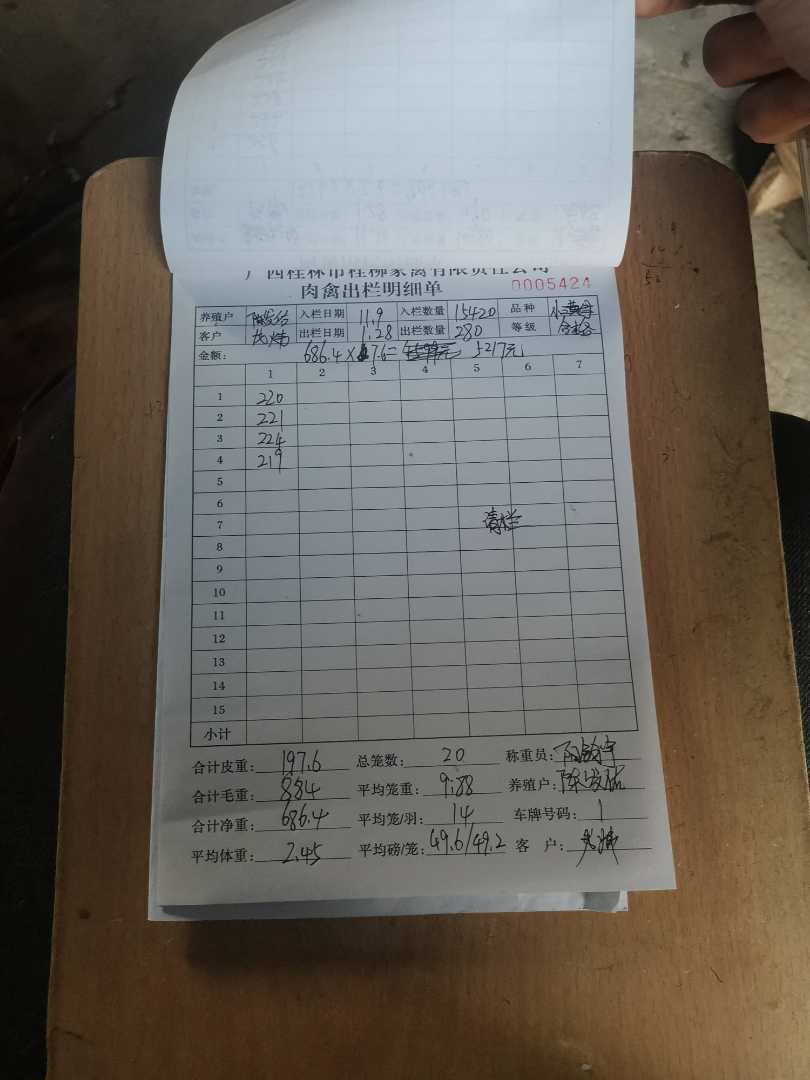 广西桂林市桂柳家禽有限责任公司
肉禽出栏明细单 0005424
养殖户 入栏日期 11.9 入栏数量 15420 品种 小黄
客户 出栏日期 1.28 出栏数量 280 等级
金额: 686.4×7.6= 5217元
1 2 3 4 5 6 7
1 220
2 221
3 224
4 219
5
6
7 清栏
8
9
10
11
12
13
14
15
小计
合计皮重: 197.6 总笼数: 20 称重员:
合计毛重: 884 平均笼重: 9.88 养殖户: 陈发
合计净重: 686.4 平均笼/羽: 14 车牌号码: 1
平均体重: 2.45 平均磅/笼: 49.6/49.2 客户: